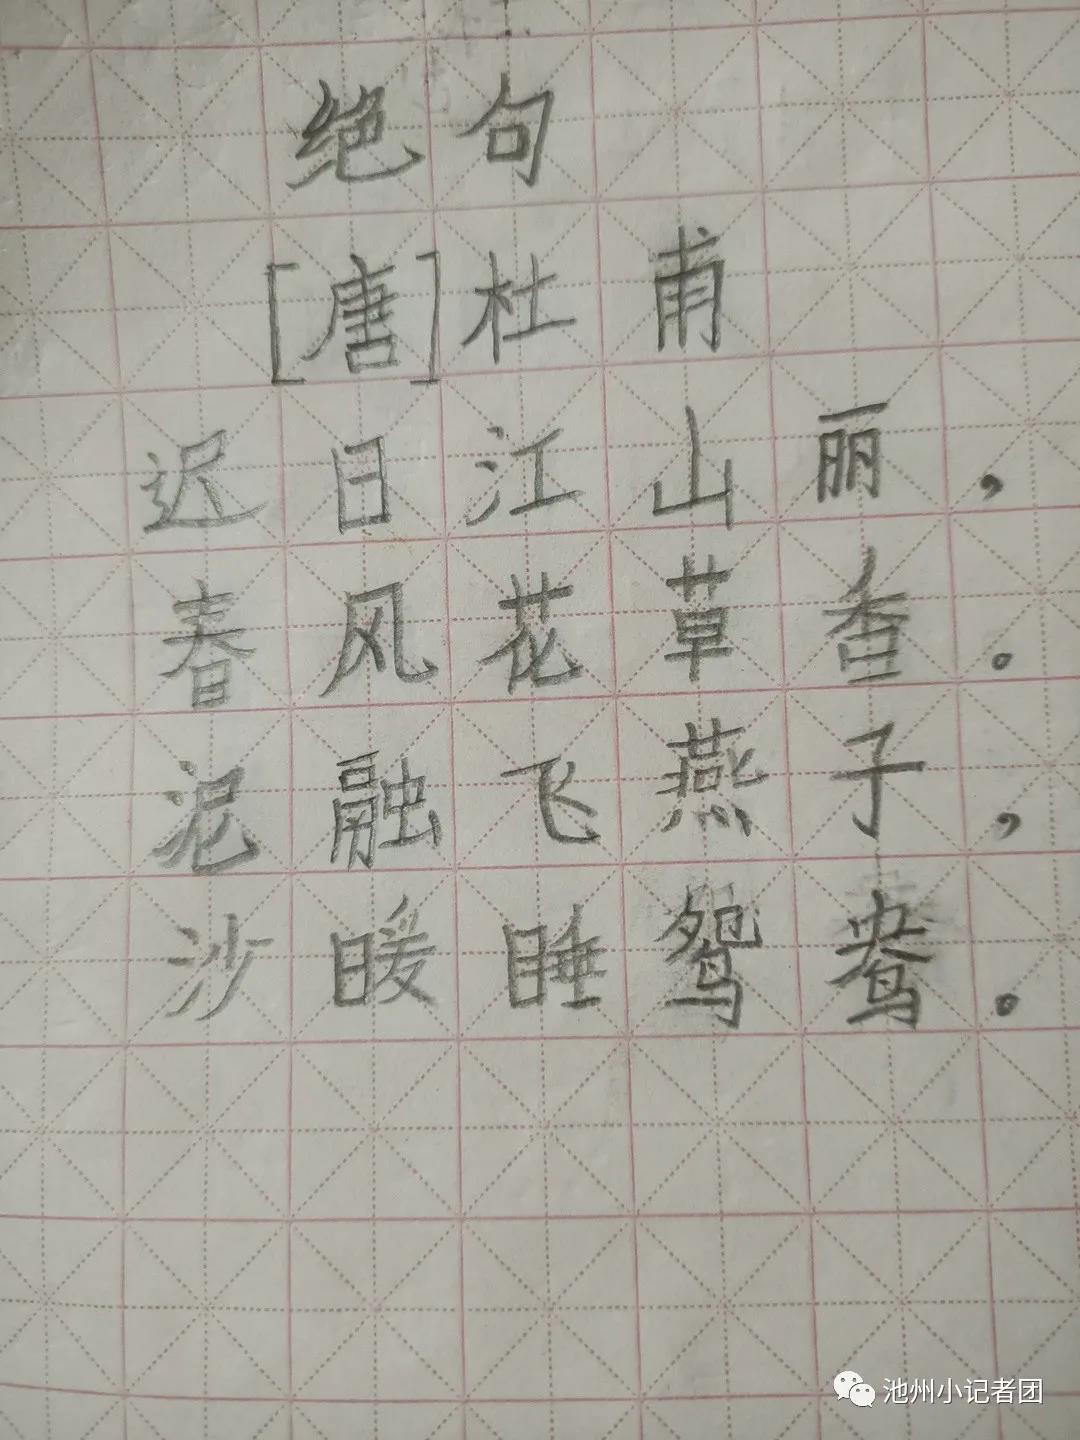 绝句
[唐]杜甫
迟日江山丽，
春风花草香。
泥融飞燕子，
沙暖睡鸳鸯。
池州小记者团